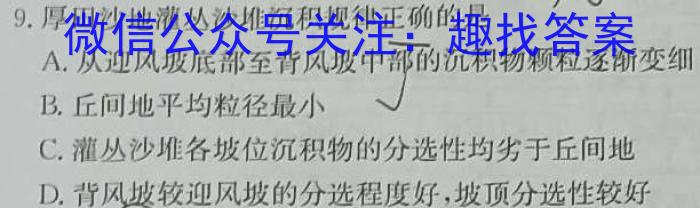 9. 厚田沙地灌丛沙堆沉积规律正确的是
微信公众号关注：趣找答案
A. 从迎风坡底部至背风坡中部的沉积物颗粒逐渐变细
B. 丘间地平均粒径最小
C. 灌丛沙堆各坡位沉积物的分选性均劣于丘间地
D. 背风坡较迎风坡的分选程度好,坡顶分选性较好